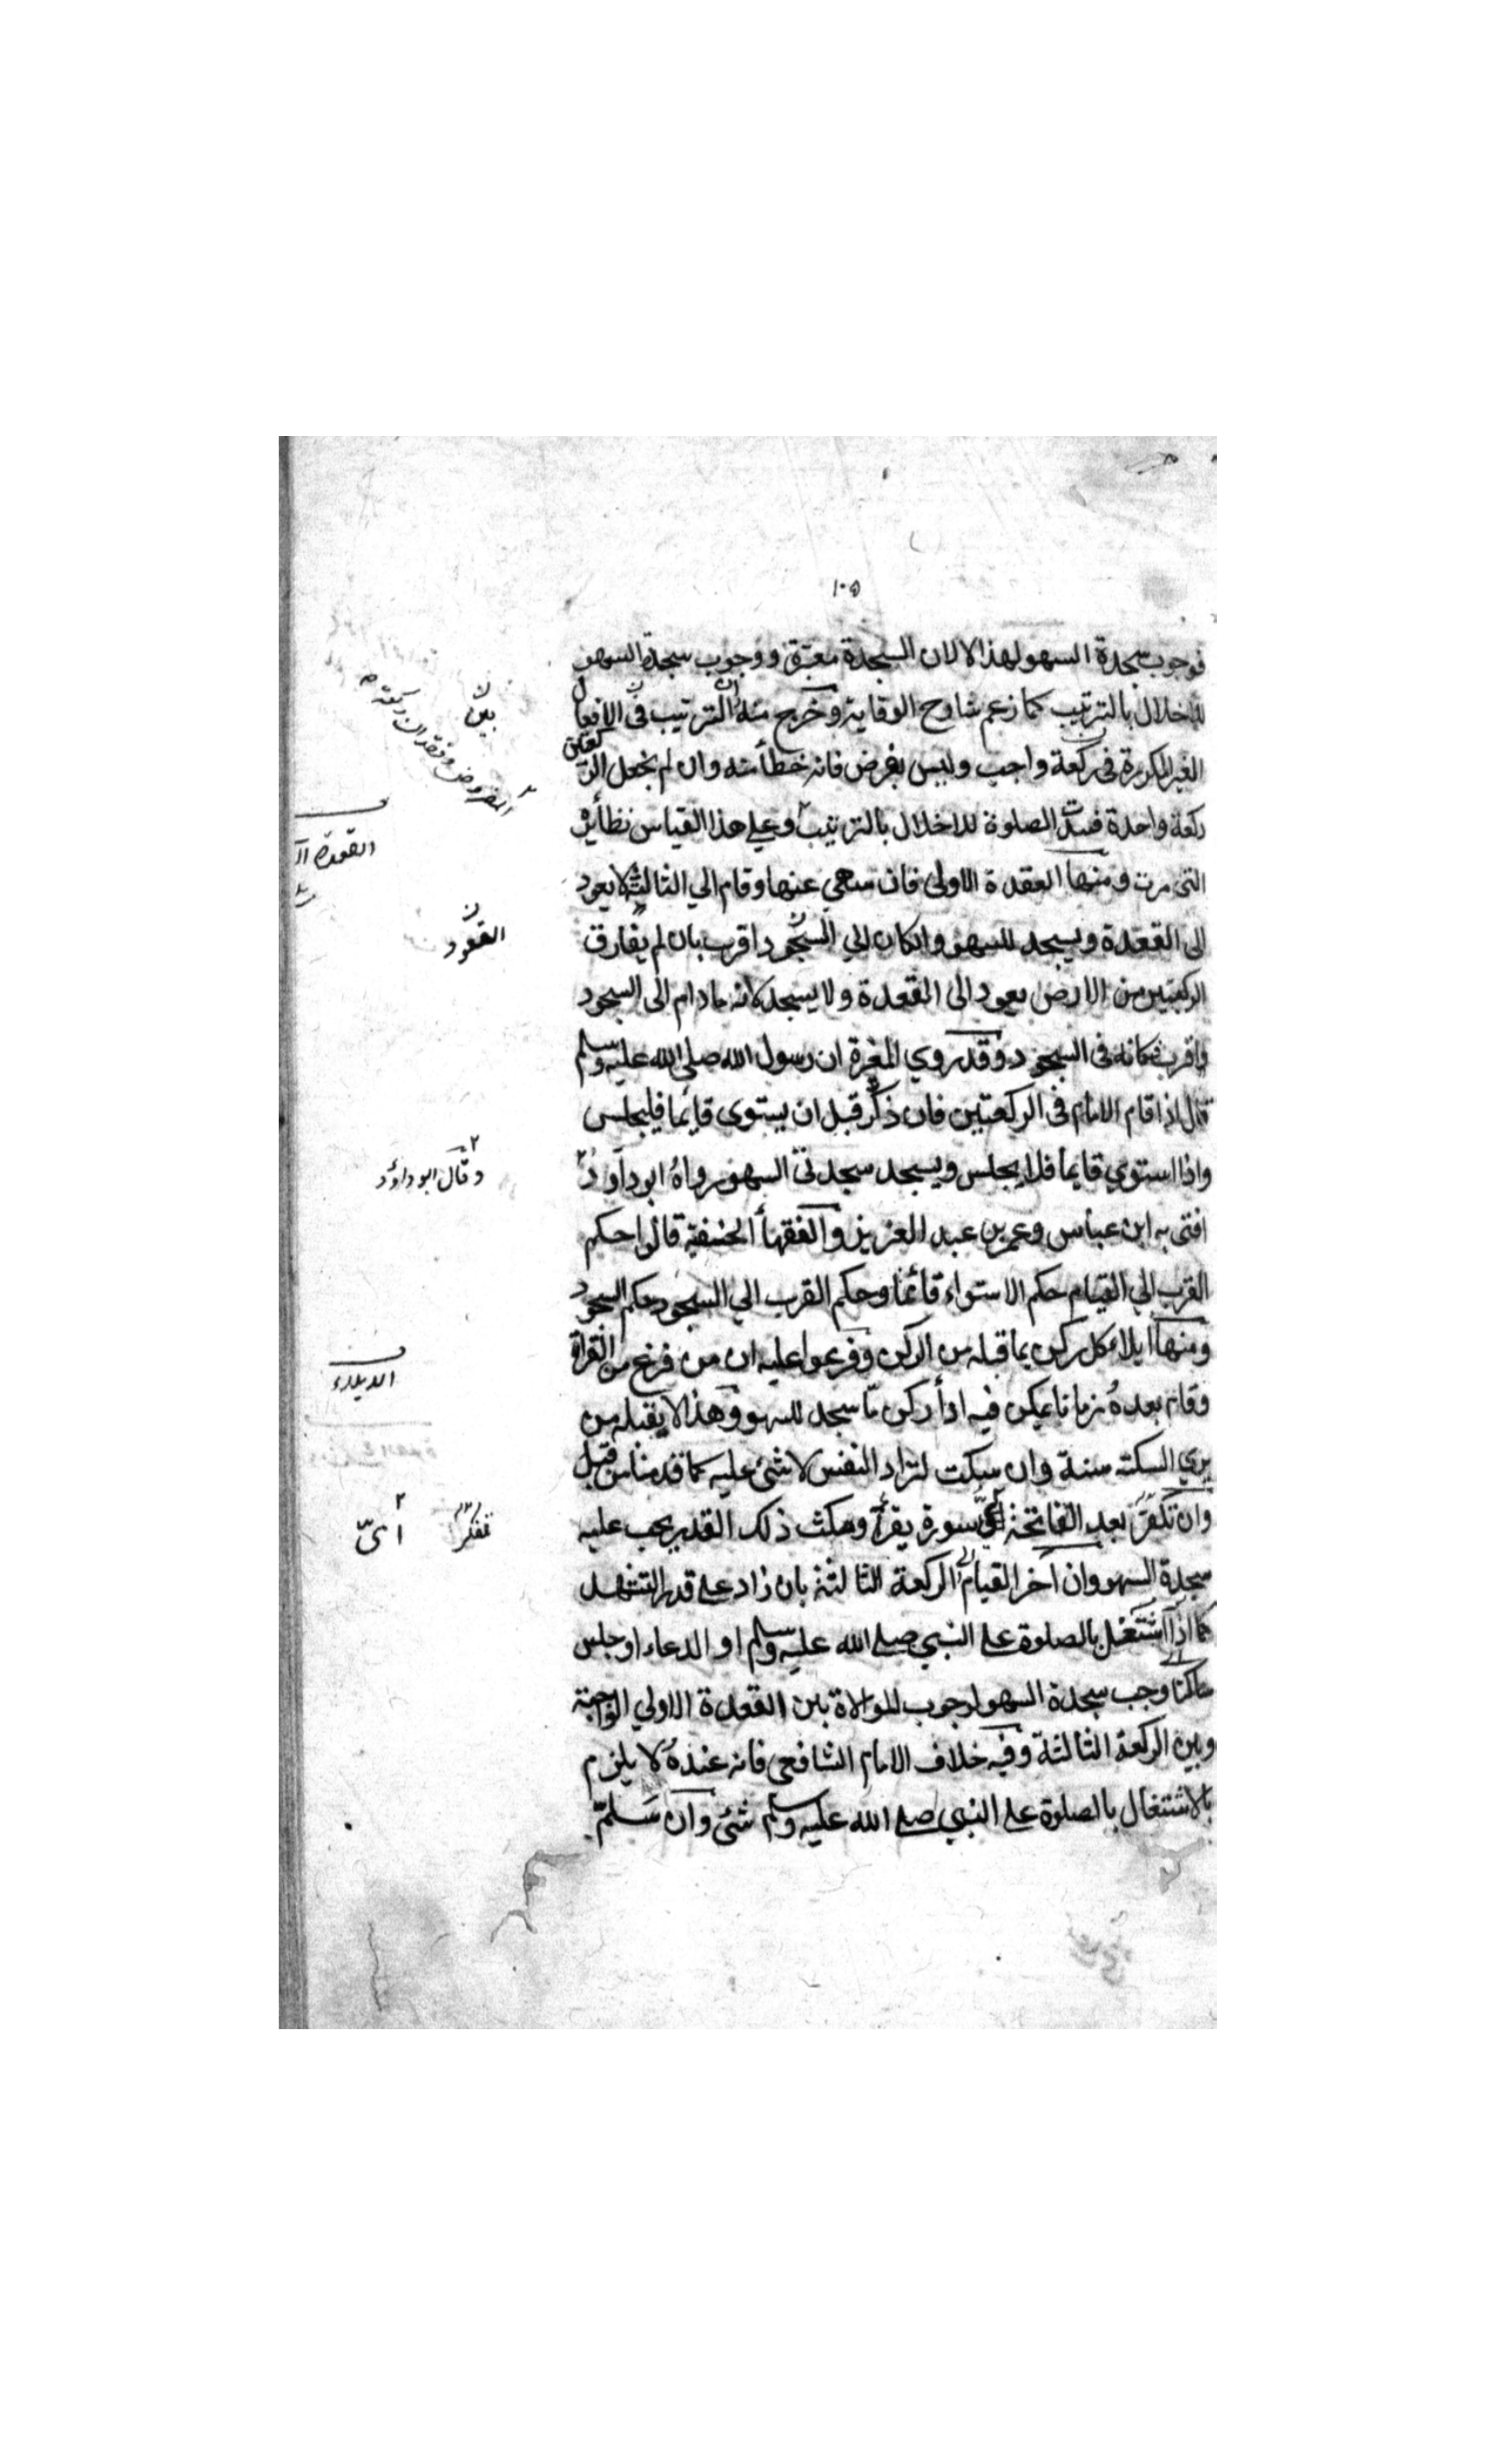 ١٠٥
فوجوب سجدة السهو لهذا لا لان السجدة معتبرة ووجوب سجدة السهو
للاخلال بالترتيب كما زعم شارح الوقاية وخرج منه ان الترتيب فى الافعال
الغير المكررة فى ركعة واجب وليس بفرض فانه خطأ منه وان لم يجعل الركعتين
ركعة واحدة فسدت الصلوة للاخلال بالترتيب وعلى هذا القياس نظائره
التى مرت ومنها القعدة الاولى فان سهى عنها وقام الي الثالثة لا يعود
الى القعدة ويسجد للسهو وان كان الي السجود اقرب بان لم يفارق
الركبتين من الارض يعود الى القعدة ولا يسجد لانه ما دام الى السجود
اقرب فكانه فى السجود وقد روي المغيرة ان رسول الله صلى الله عليه وسلم
قال اذا قام الامام فى الركعتين فان ذكر قبل ان يستوى قايما فليجلس
واذا استوي قايما فلا يجلس ويسجد سجدتى السهو رواه ابو داود
افتى به ابن عباس وعمر بن عبد العزيز والفقهأ الحنفية قالوا حكم
القرب الي القيام حكم الاستواء قائما وحكم القرب الي السجود حكم السجود
ومنها ايلاء كل ركن بما قبله من الركن وفرعوا عليه ان من فرغ من القراة
وقام بعده زمانا يمكن فيه ادأ ركن ما سجد للسهو وهذا لا يقبله من
يري السكتة سنة وان سكت لتراد النفس لا شئ عليه كما قدمنا من قبل
وان تفكر بعد الفاتحة اي سورة يقرأ ومكث ذلك القدر يجب عليه
سجدة السهو وان اخر القيام الى الركعة الثالثة بان زاد على قدر التشهد
كما اذا اشتغل بالصلوة على النبي صلى الله عليه وسلم او الدعاء او جلس
ساكتا وجب سجدة السهو لوجوب الموالاة بين القعدة الاولي الواجبة
وبين الركعة الثالثة وفيه خلاف الامام الشافعى فانه عنده لا يلزم
بالاشتغال بالصلوة على النبي صلى الله عليه وسلم شئ وان سلم
بين
الفروض وفقدان ركعة
القعدة
القعود
وقال ابو داؤد
الايلاء
تفكر
اىّ